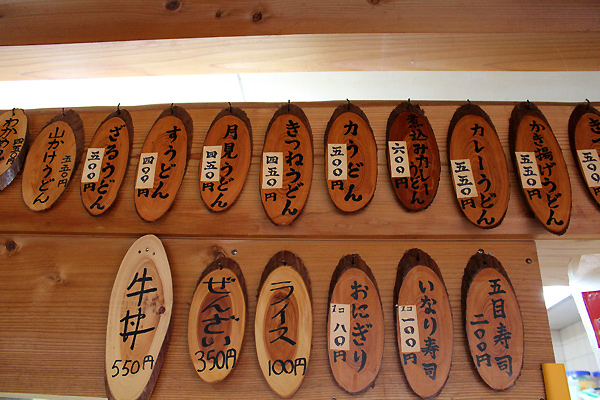 わかめ
四五〇円
山かけうどん
五五〇円
ざるうどん
五〇〇円
すうどん
四〇〇円
月見うどん
四五〇円
きつねうどん
四五〇円
力うどん
五〇〇円
煮込みカレーうどん
六〇〇円
カレーうどん
五五〇円
かき揚げうどん
五五〇円
五〇〇円
牛丼
550円
ぜんざい
350円
ライス
100円
おにぎり
1コ八〇円
いなり寿司
1コ一〇〇円
五目寿司
二〇〇円